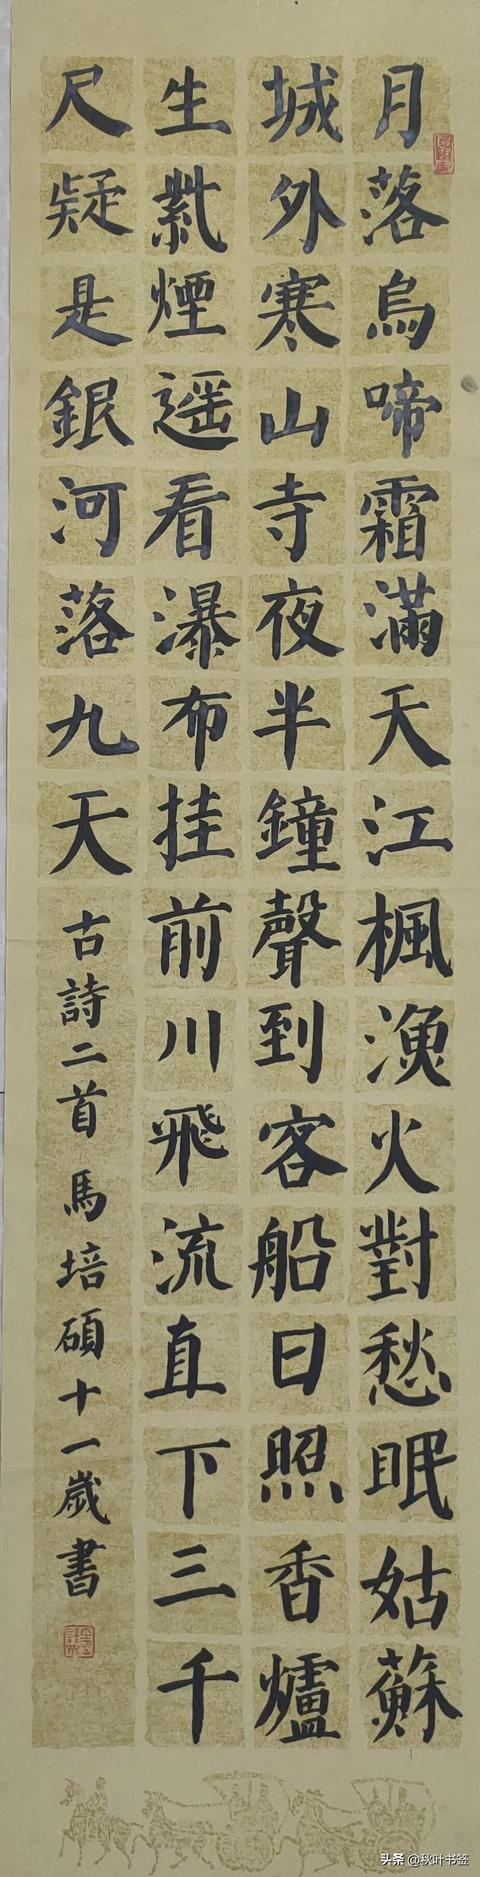 月落烏啼霜滿天江楓漁火對愁眠姑蘇
城外寒山寺夜半鐘聲到客船日照香爐
生紫煙遥看瀑布挂前川飛流直下三千
尺疑是銀河落九天
古詩二首 馬培碩十一歲書
头条 @秋叶书签